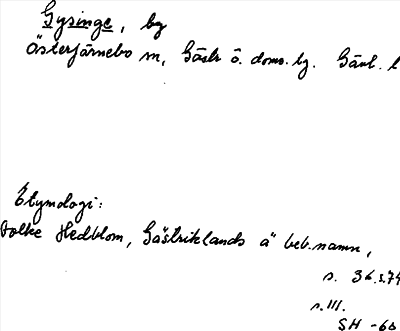 Gysinge, by
Österfärnebo sn, Gästr ö. doms. hg. Gävl. l
Etymologi:
Folke Hedblom, Gästriklands ä beb.namn,
s. 36 s.74
s.111.
SH -60